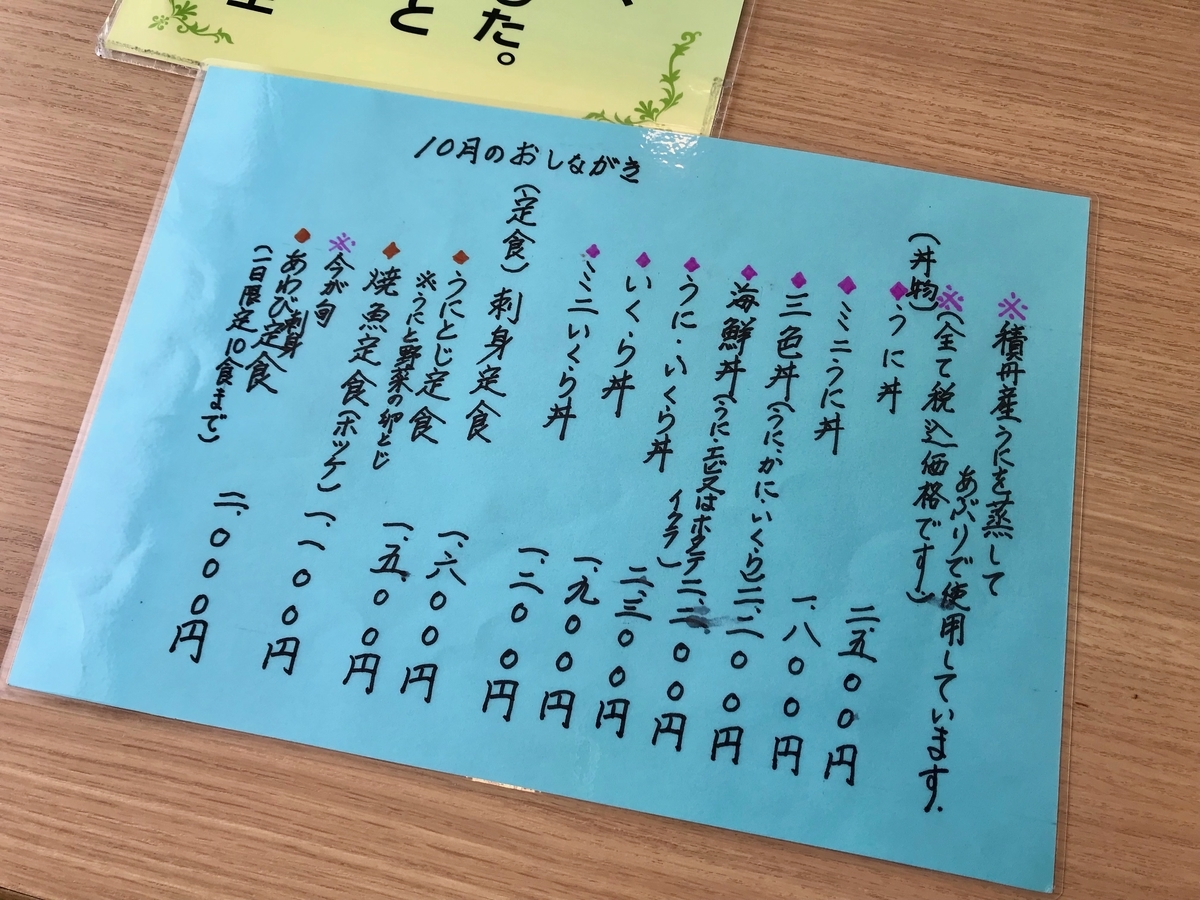 した。
と
10月のおしながき
※積丹産うにを蒸して
あぶりで使用しています.
※(全て税込価格です)
(丼物)
◆うに丼 二.五〇〇円
◆ミニうに丼 一.八〇〇円
◆三色丼(うに・かに・いくら) 二.二〇〇円
◆海鮮丼(うに・エビ又はホタテ イクラ) 二.二〇〇円
◆うに・いくら丼 二.三〇〇円
◆いくら丼 一.九〇〇円
◆ミニいくら丼 一.二〇〇円
(定食)
刺身定食 一.六〇〇円
◆うにとじ定食 一.五〇〇円
※うにと野菜の卵とじ
◆焼魚定食(ホッケ) 一.一〇〇円
※今が旬
◆あわび刺身定食 二.〇〇〇円
(一日限定10食まで)